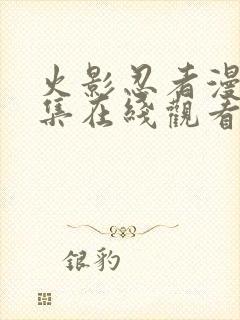 火影忍者漫
集在綫觀看
银豹